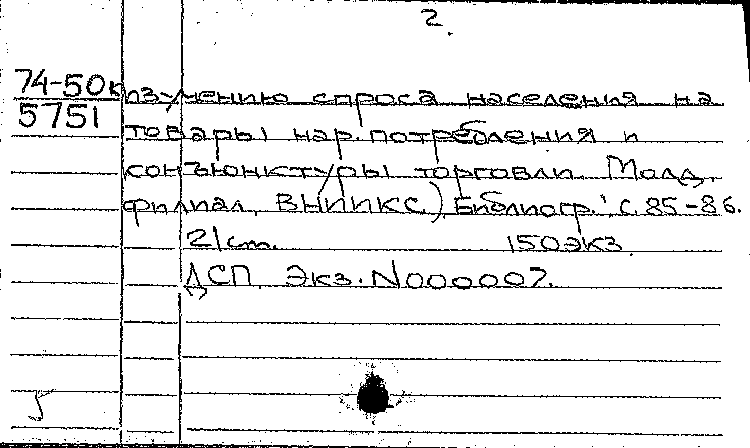 2.
74-50к изучению спроса населения на
5751 товары нар. потребления и
конъюнктуры торговли. Молд.
филиал. ВНИИКС) Библиогр.: с. 85-86.
21 cm. 150 экз.
ДСП. Экз. N000007.